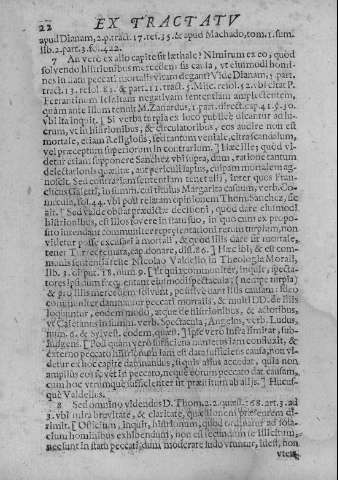 22 EX TRACTATV
apud Dianam, 2. p. tract. 17. res. 35. & apud Machado, tom. 1. sum.
lib. 2. part. 3. fol. 422.
7 An vero ex alio capite sit læthale? Nimirum ex eo, quod
solvendo histrionibus mercedem sis causa, ut eiusmodi homines
in statu peccati mortalis vitam degant? Vide Dianam, 5. part.
tract. 13. resol. 83. & part. 11. tract. 5. Misc. resol. 52. vbi citat P.
Ferrantinum Iesuitam negativam sententiam amplectentem,
quam ante illum tenuit M. Zanardus, 1. part. direct. cap. 41. §. 30.
vbi ita inquit. [ Si verba turpia ex ioco publice dicantur ad
vt histrionibus, & circulatoribus, eos audire non est
mortale, etiam Religiosis, sed tantum veniale,
vel præceptum superiorum in contrarium. ] Hæc ille; quod
est etiam supponere Sanchez vbi supra, dum, ratione tantum
delectationis qualitæ, aut periculi lapsus, culpam mortalem
Sed contrariam sententiam tenet alii, inter quos
in summ. cui titulus Margarita casuum, verb.
fol. 44. vbi post relatam opinionem Thom. Sanchez,
[ Sed valde obstat prædictæ decisioni, quod dare eiusmodi
histrionibus, est illos fovere in statu suo, in quo cum ex proposito
intendant communiter repræsentationi rerum turpium, non
videtur posse excusari a mortali, & quod illis dare sit mortale,
tenet Turrecremata, cap. donare, dist. 86. ] Hæc ibi, & est communis
sententia teste Nicolao Valdelio in Theologia Morali,
lib. 3. disput. 18. num. 9. [ Et quia communiter, inquit, spectatores
ipsi dum frequentant eiusmodi spectacula, ( nempe turpia)
& pro illis mercedem solvunt, positive dant illis causam: ideo
communiter damnantur peccati mortalis, & multi DD. de illis
loquuntur, eodem modo, atque de histrionibus, & actoribus,
vt Caietanus in summ. verb. Spectacula, Angelus, verb. Ludus,
num. 6. & Sylvest. eodem, quæst. ] Ipse vero infra
[ Pod quam vero sufficiens numerus iam confluxit, &
externo peccato histrionum iam est data sufficiens causa, non
detur ex hoc capite damnandus, si quis alius accedat, quia non
amplius eos fovet in peccato, neque eorum peccato dat causam,
cum hoc vtrumque sufficienter sit præstitum ab aliis. ] Hucusque
Valdelius.
8 Sed omnino videndus D. Thom. 2. 2. quæst. 168. art. 3. ad
3. vbi mira brevitate, & claritate, quæstionem præsentem dirimit.
[ Officium, inquit, histrionum, quod ordinatur ad solacium
hominibus exhibendum, non est secundum se illicitum,
nec sunt in statu peccati, dum moderate ludo vtantur, idest, non